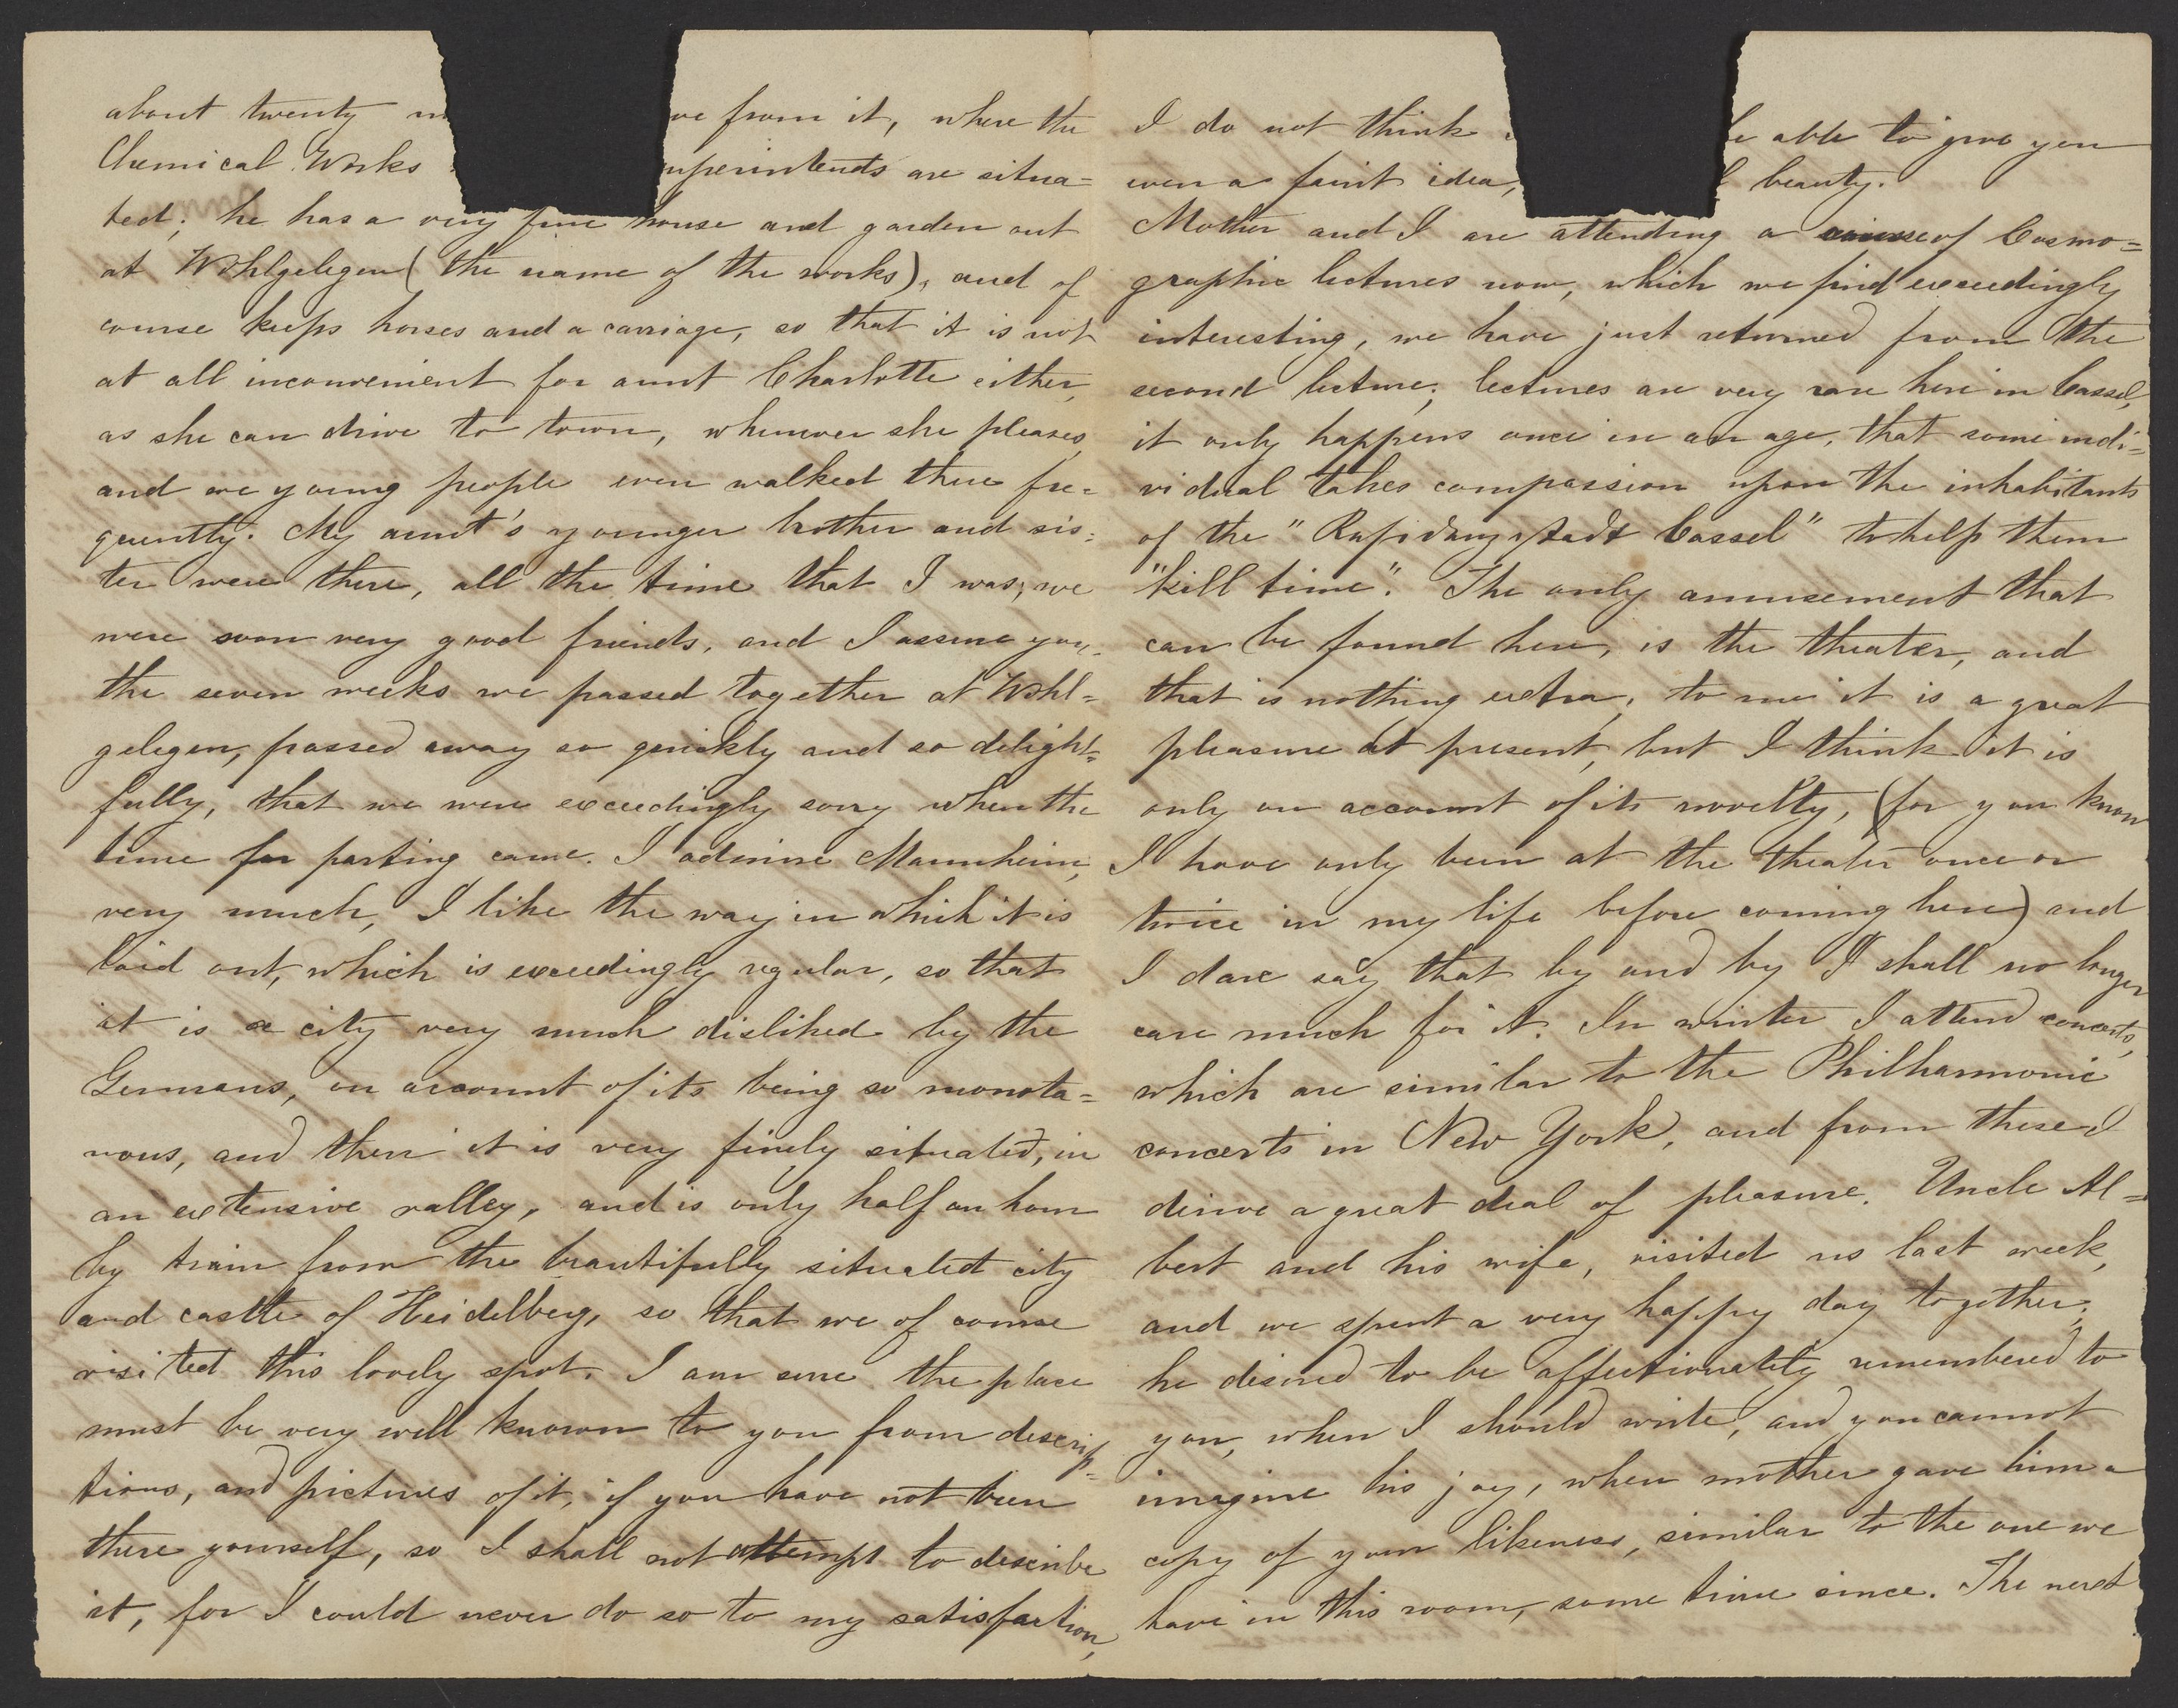 about twenty ve from it, where the
Chemical Works uperintends are situa=
ted; he has a very fine house and garden out
at Wohlgelegen (the name of the works), and of
course keeps horses and a carriage, so that it is not
at all inconvenient for aunt Charlotte either,
as she can drive to town, whenever she pleases,
and we young people even walked there fre=
quently. My aunt's younger brother and sis=
ter were there, all the time that I was; we
were soon very good friends, and I assure you,
the seven weeks we passed together at Wohl=
gelegen, passed away so quickly and so delight=
fully, that we were exceedingly sorry when the
time for parting came. I admire Mannheim,
very much, I like the way in which it is
laid out, which is exceedingly regular, so that
it is a city very much disliked by the
Germans, on account of its being so monoto=
nous, and then it is very finely situated, in
an extensive valley, and is only half an hour
by train from the beautifully situated city
and castle of Heidelberg, so that we of course
visited this lovely spot. I am sure the place
must be very well known to you from descrip=
tions, and pictures of it, if you have not been
there yourself, so I shall not attempt to describe
it, for I could never do so to my satisfaction,
I do not think be able to give you
even a faint idea, beauty.
Mother and I are attending a course of Cosmo=
graphic lectures now, which we find exceedingly
interesting, we have just returned from the
second lecture; lectures are very rare here in Cassel,
it only happens once in an age, that some indi=
vidual takes compassion upon the inhabitants
of the "Residenzstadt Cassel" to help them
"kill time". The only amusement that
can be found here, is the theater, and
that is nothing extra; to me it is a great
pleasure at present, but I think it is
only on account of its novelty, (for you know
I have only been at the theater once or
twice in my life before coming here) and
I dare say that by and by I shall no longer
care much for it. In winter I attend concerts,
which are similar to the Philharmonic
concerts in New York, and from these I
derive a great deal of pleasure. Uncle Al=
bert and his wife, visited us last week,
and we spent a very happy day together;
he desired to be affectionately remembered to
you, when I should write, and you cannot
imagine his joy, when mother gave him a
copy of your likeness, similar to the one we
have in this room, some time since. The next